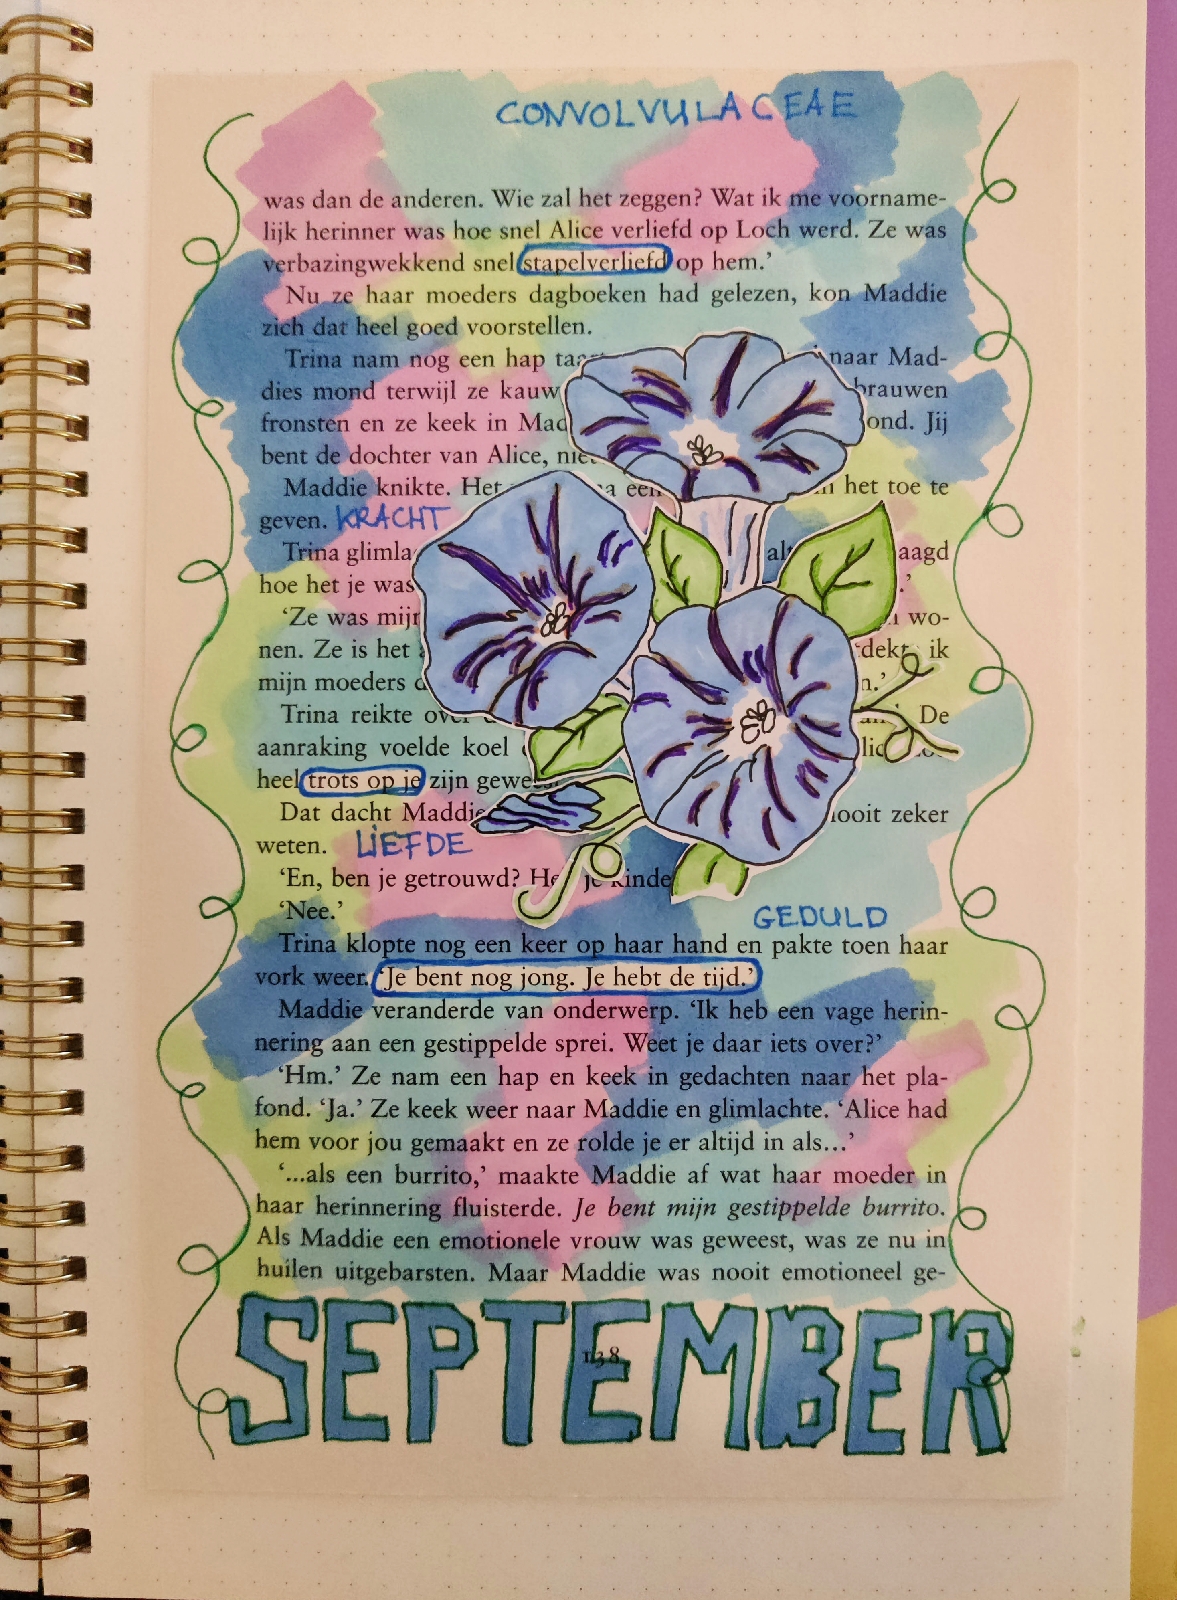 CONVOLVULACEAE
was dan de anderen. Wie zal het zeggen? Wat ik me voorname-
lijk herinner was hoe snel Alice verliefd op Loch werd. Ze was
verbazingwekkend snel stapelverliefd op hem.’
Nu ze haar moeders dagboeken had gelezen, kon Maddie
zich dat heel goed voorstellen.
Trina nam nog een hap naar Mad-
dies mond terwijl ze brauwen
fronsten en ze keek in Jij
bent de dochter van Alice,
Maddie knikte. Het het toe te
geven. KRACHT
Trina
hoe het je was
‘Ze was wo-
nen. Ze is het ik
mijn moeders
Trina reikte De
aanraking voelde koel
heel trots op je zijn
Dat dacht zeker
weten. LIEFDE
‘En, ben je getrouwd? je
‘Nee.’
GEDULD
Trina klopte nog een keer op haar hand en pakte toen haar
vork weer. ‘Je bent nog jong. Je hebt de tijd.’
Maddie veranderde van onderwerp. ‘Ik heb een vage herin-
nering aan een gestippelde sprei. Weet je daar iets over?’
‘Hm.’ Ze nam een hap en keek in gedachten naar het pla-
fond. ‘Ja.’ Ze keek weer naar Maddie en glimlachte. ‘Alice had
hem voor jou gemaakt en ze rolde je er altijd in als...’
‘...als een burrito,’ maakte Maddie af wat haar moeder in
haar herinnering fluisterde. Je bent mijn gestippelde burrito.
Als Maddie een emotionele vrouw was geweest, was ze nu in
huilen uitgebarsten. Maar Maddie was nooit emotioneel ge-
SEPTEMBER
138